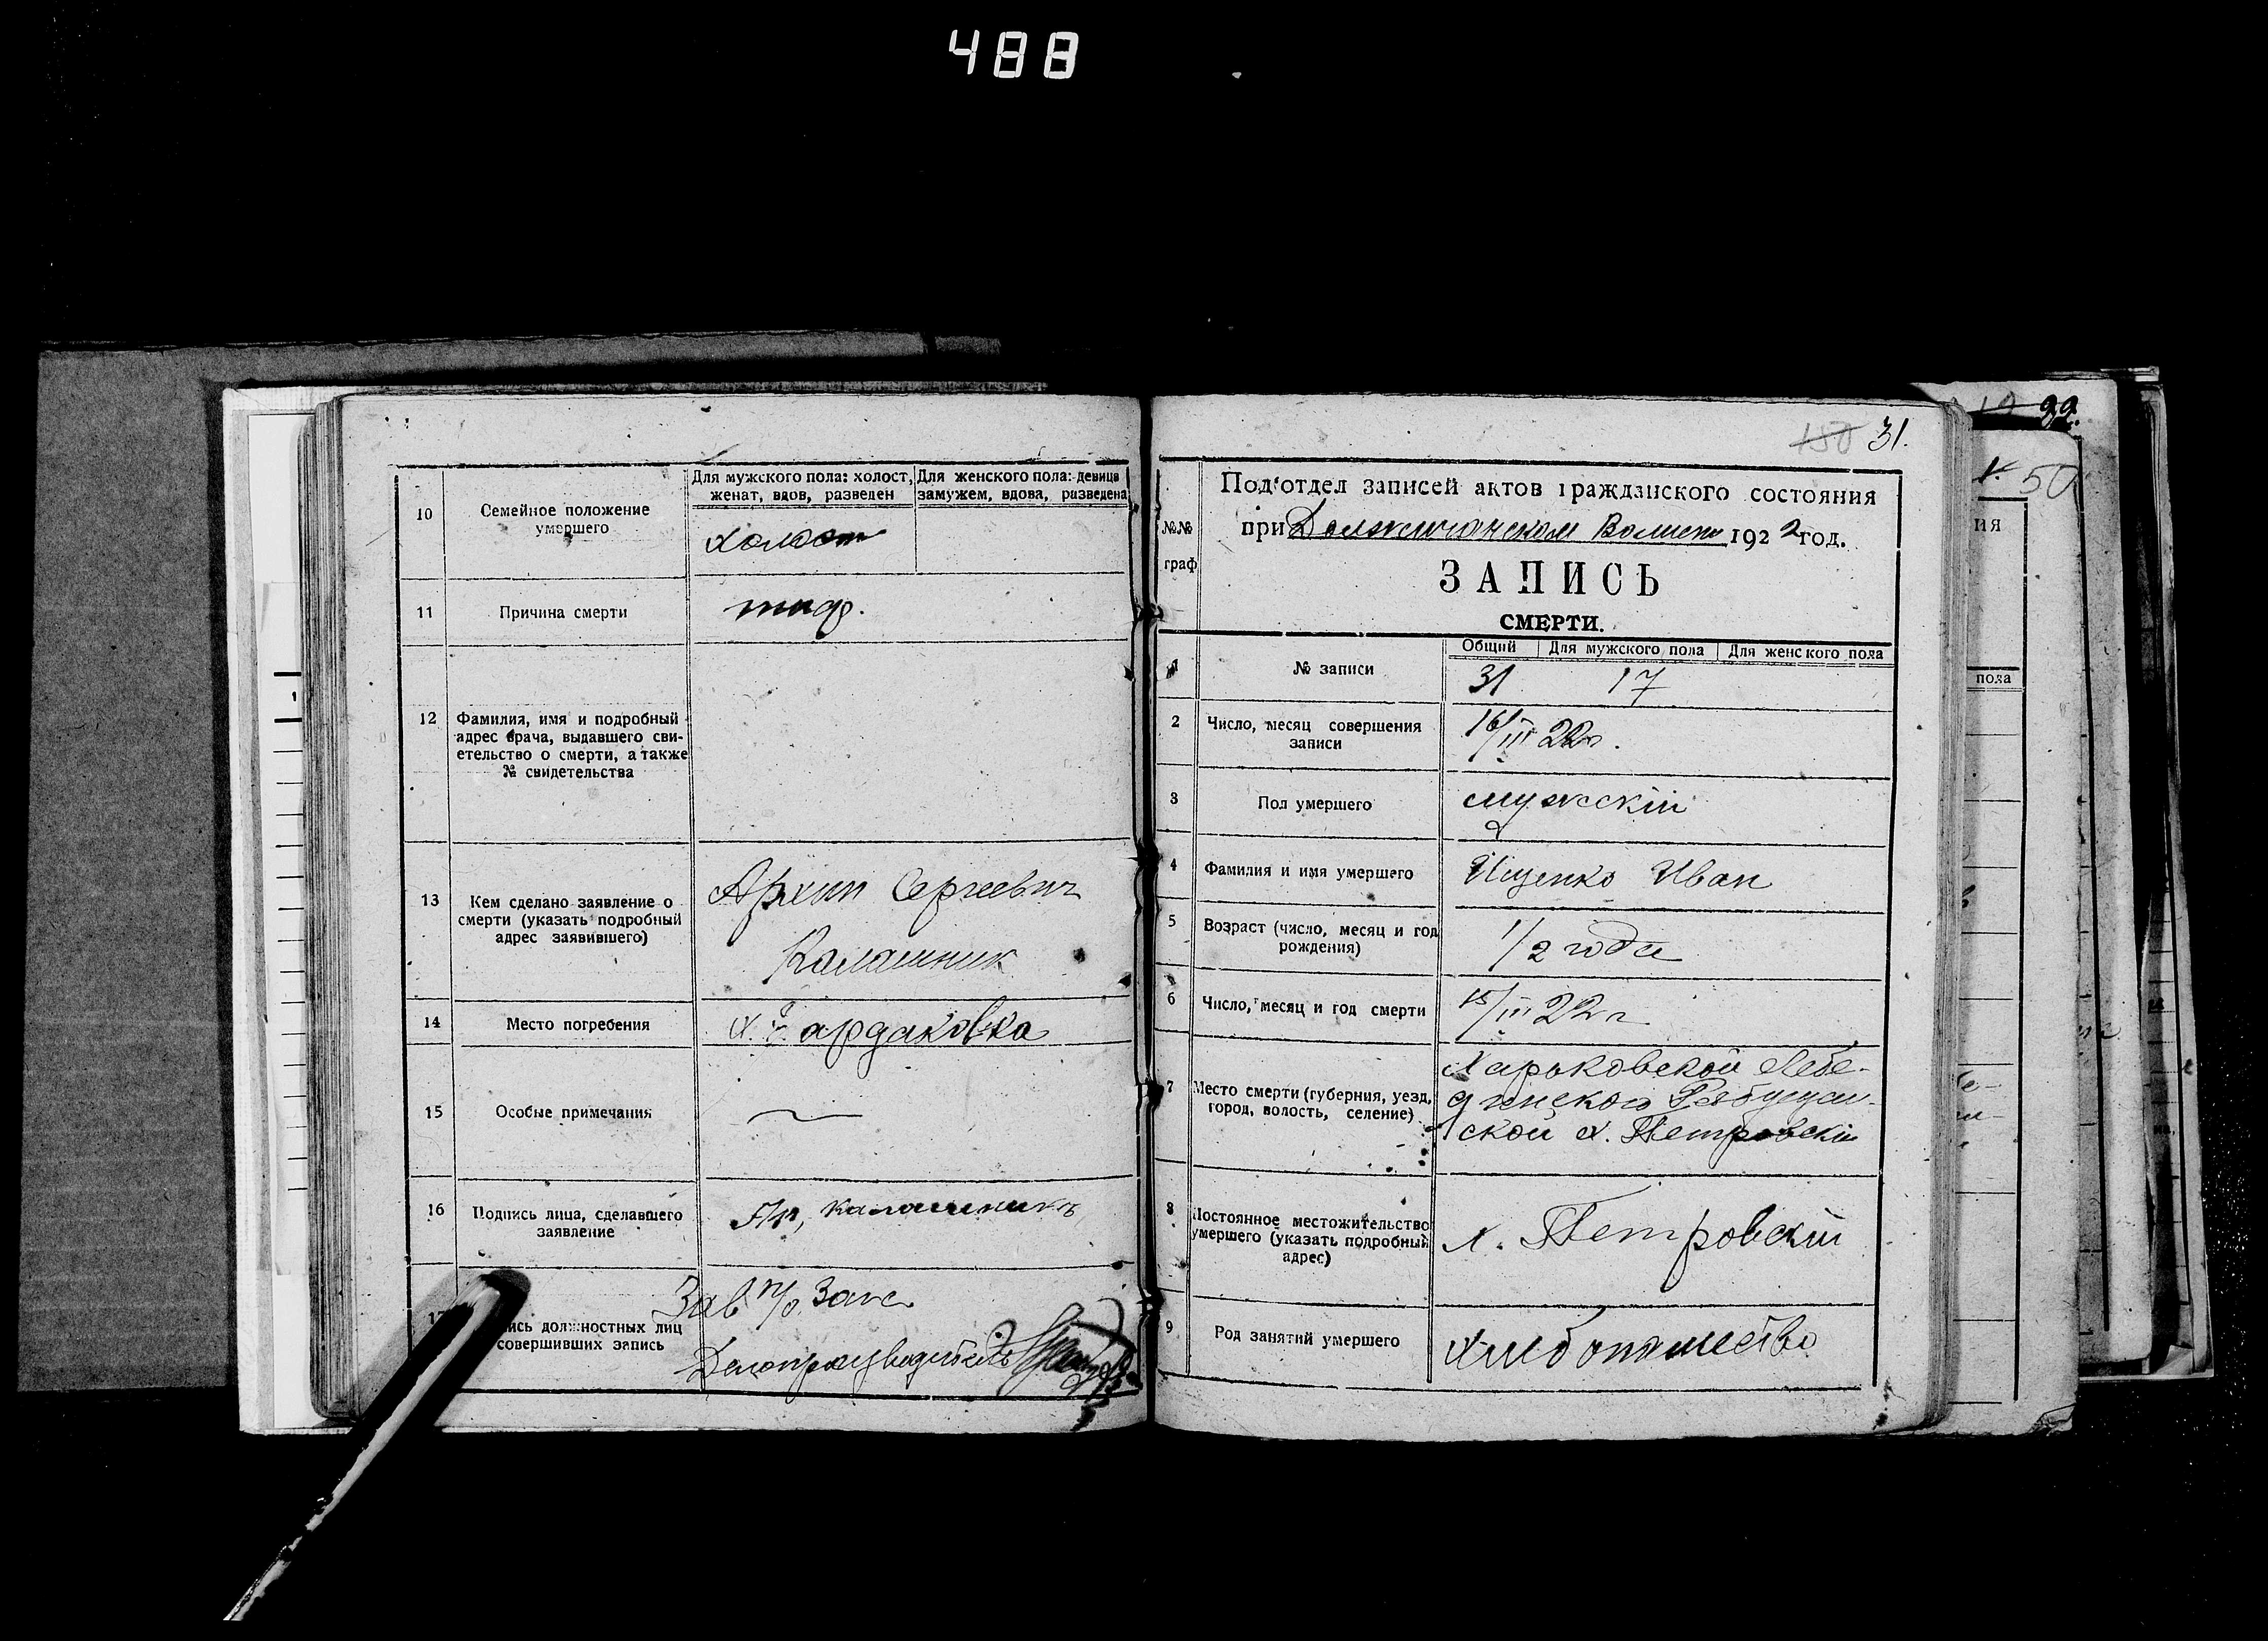 488
10
Семейное положение
умершего
Для мужского пола: холост,
женат, вдов, разведен
Для женского пола: девица
замужем, вдова, разведена
холост
11
Причина смерти
тиф.
12
Фамилия, имя и подробный
адрес врача, выдавшего сви-
етельство о смерти, а также
№ свидетельства
13
Кем сделано заявление о
смерти (указать подробный
адрес заявившего)
Архип Сергеевич
Калашник
14
Место погребения
х.
15
Особые примечания
16
Подпись лица, сделавшего
заявление
Калашникъ
17
ись должностных лиц
совершивших запись
Зав п/о Загс
Делопроизводитель
150 31.
№№
граф
Под'отдел записей актов гражданского состояния
при 1922 год.
ЗАПИСЬ
СМЕРТИ.
1
№ записи
Общий
Для мужского пола
Для женского пола
31
17
2
Число, месяц совершения
записи
16/III 22г.
3
Пол умершего
мужскій
4
Фамилия и имя умершего
Ищенко Иван
5
Возраст (число, месяц и год
рождения)
1/2 года
6
Число, месяц и год смерти
15/III 22 г
7
Место смерти (губерния, уезд,
город, волость, селение)
Харьковской Лебе-
динского
ской х. Петровскій
8
Постоянное местожительство
умершего (указать подробный
адрес)
х. Петровскій
9
Род занятий умершего
хлибопашество
22.
50
ия
пола